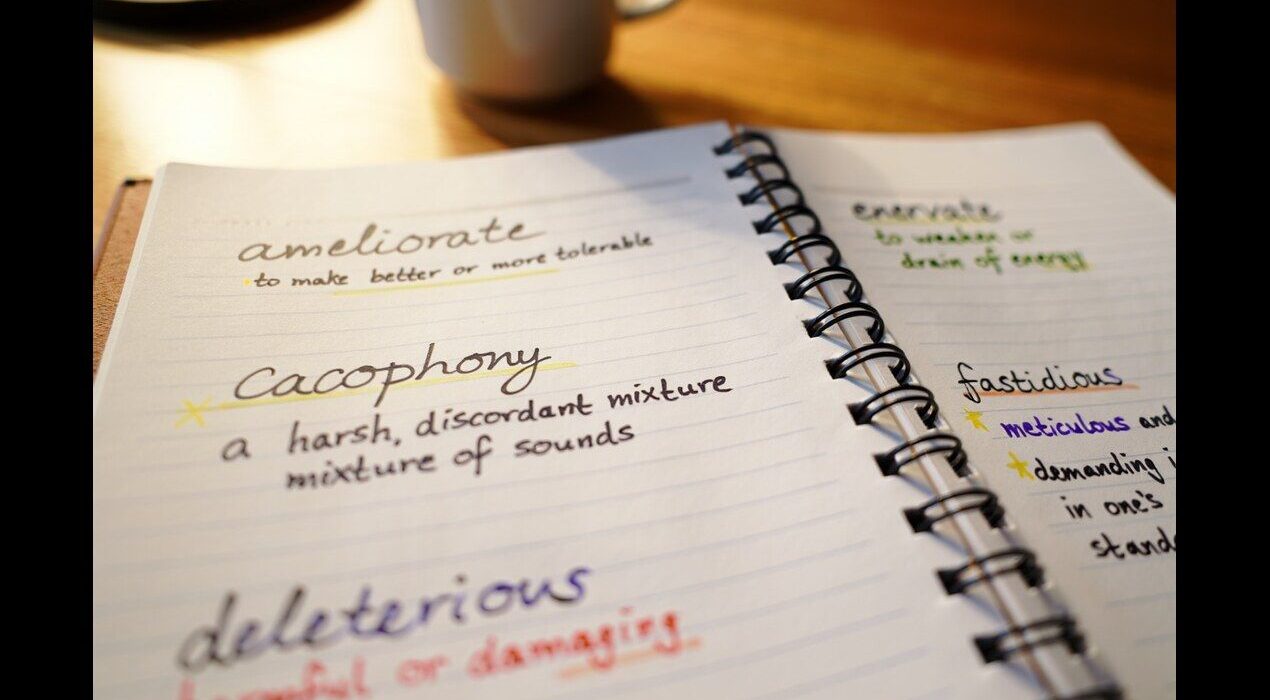 ameliorate
to make better or more tolerable
cacophony
a harsh, discordant mixture
mixture of sounds
deleterious
harmful or damaging
enervate
to weaken or
drain of energy
fastidious
meticulous and
demanding
in one's